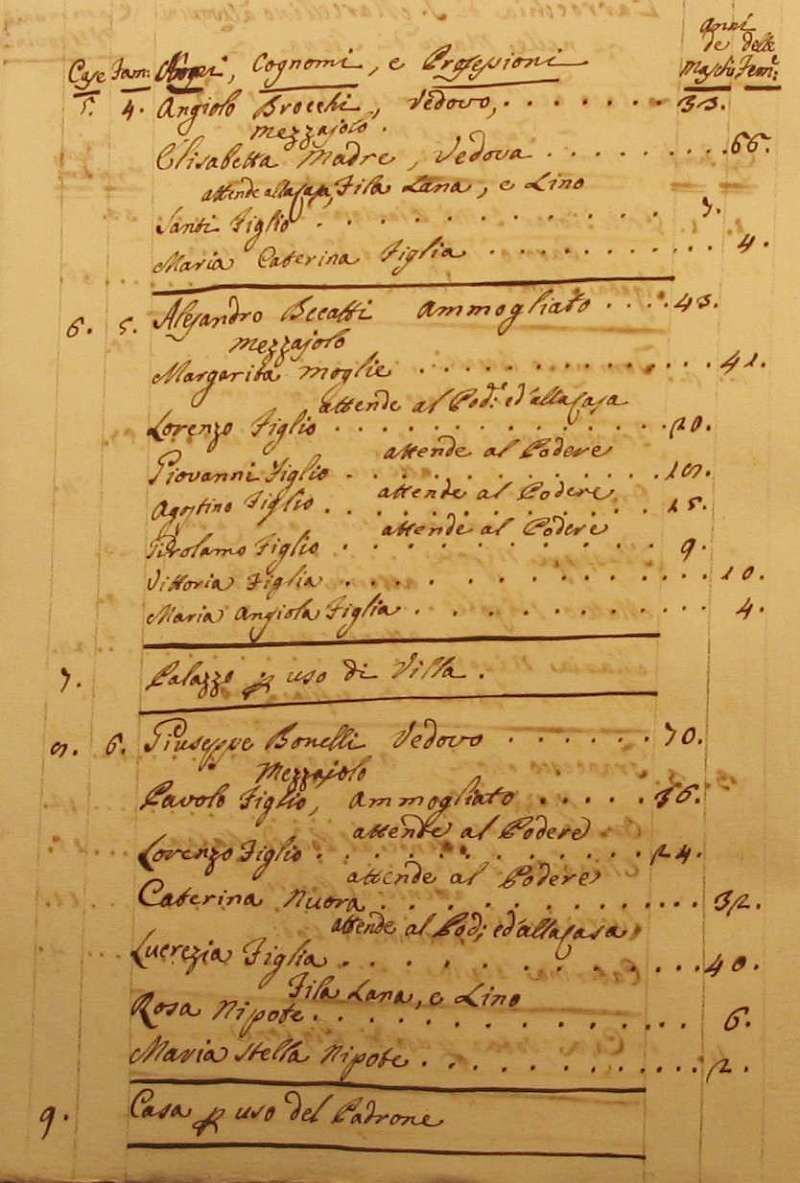 Anni
de delle
Case Fam: Nomi, Cognomi, e Professioni Maschi Fem:
5. 4. Angiolo Brocchi, Vedovo, . . . . . . . 33.
mezzajolo.
Elisabetta Madre, Vedova . . . . . . . . . . 66.
attende alla Casa, Fila Lana, e Lino
Santi Figlio . . . . . . . . . . . 7.
Maria Caterina Figlia . . . . . . . . . . . 4.
6. 5. Alesandro Beccatti Ammogliato . . . . 43.
mezzajolo
Margarita moglie . . . . . . . . . . . . . . 41.
attende al Pod.e ed'alla Casa
Lorenzo Figlio . . . . . . . . . . . . . 20.
attende al Podere
Giovanni Figlio . . . . . . . . . . . . 18.
attende al Podere
Agostino Figlio . . . . . . . . . . . . 15.
attende al Podere
Girolamo Figlio . . . . . . . . . . . 9.
Vittoria Figlia . . . . . . . . . . . . . . 10.
Maria Angiola Figlia . . . . . . . . . . . 4.
7. Palazzo p uso di Villa.
8. 6. Giuseppe Bonelli Vedovo . . . . . . 70.
Mezzajolo
Pavolo Figlio, Ammogliato . . . . . . 36.
attende al Podere
Lorenzo Figlio . . . . . . . . . . . . 24.
attende al Podere
Caterina Nuora . . . . . . . . . . . . . 32.
attende al Pod: ed'alla Casa
Lucrezia Figlia . . . . . . . . . . . . . 40.
Fila Lana, e Lino
Rosa Nipote . . . . . . . . . . . . . . 6.
Maria Stella Nipote . . . . . . . . . . . 2.
9. Casa p uso del Padrone